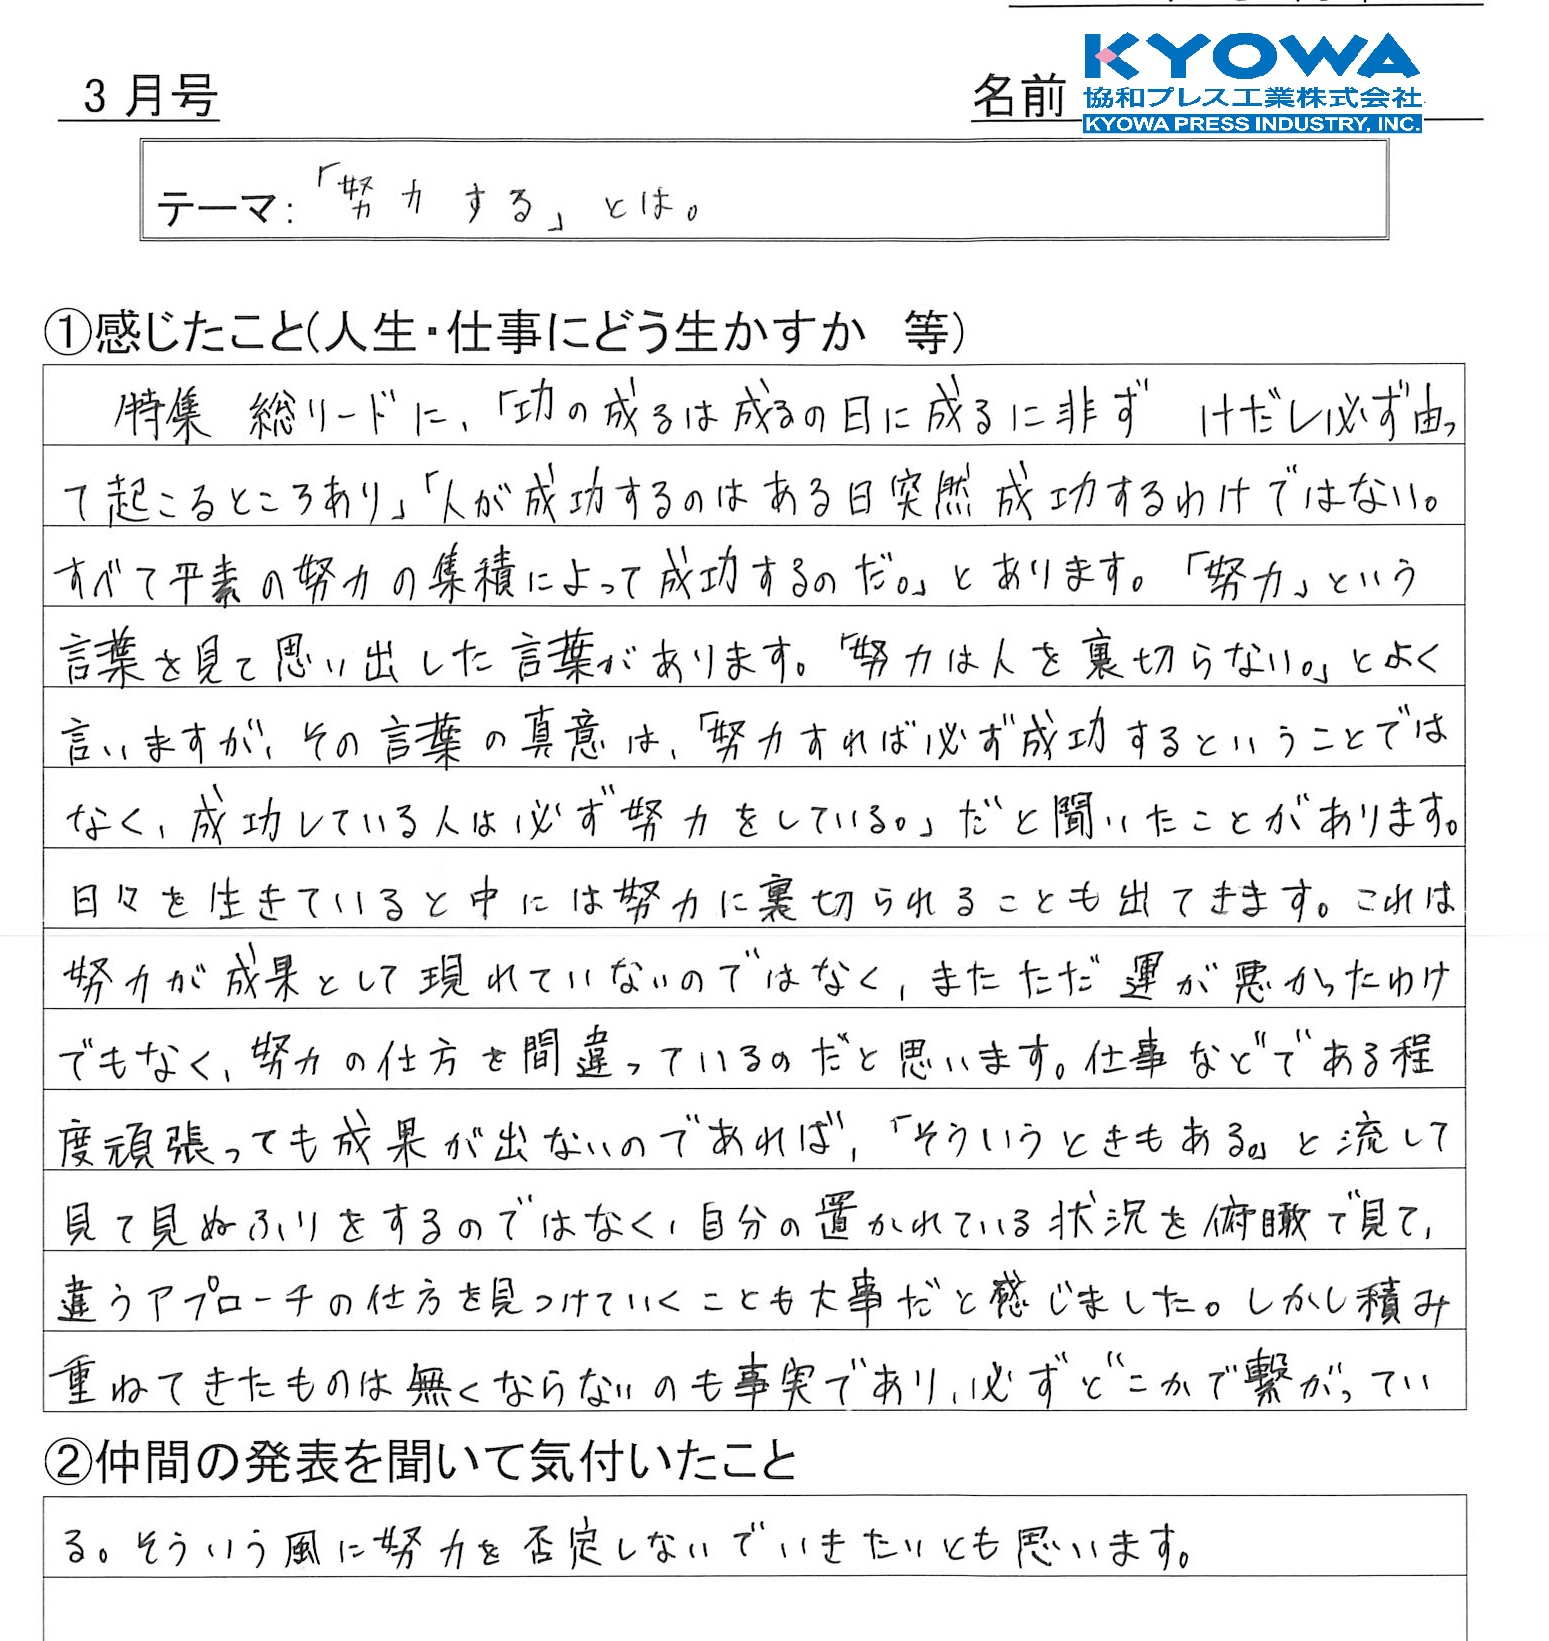 KYOWA
3 月号
名前
協和プレス工業株式会社
KYOWA PRESS INDUSTRY, INC.
テーマ: 「努力する」とは。
①感じたこと(人生・仕事にどう生かすか 等)
特集 総リードに、「功の成るは成るの日に成るに非ず けだし必ず由っ
て起こるところあり」「人が成功するのはある日突然成功するわけではない。
すべて平素の努力の集積によって成功するのだ。」とあります。「努力」という
言葉を見て思い出した言葉があります。「努力は人を裏切らない。」とよく
言いますが、その言葉の真意は、「努力すれば必ず成功するということでは
なく、成功している人は必ず努力をしている。」だと聞いたことがあります。
日々を生きていると中には努力に裏切られることも出てきます。これは
努力が成果として現れていないのではなく、またただ運が悪かったわけ
でもなく、努力の仕方を間違っているのだと思います。仕事などである程
度頑張っても成果が出ないのであれば、「そういうときもある。」と流して
見て見ぬふりをするのではなく、自分の置かれている状況を俯瞰で見て、
違うアプローチの仕方を見つけていくことも大事だと感じました。しかし積み
重ねてきたものは無くならないのも事実であり、必ずどこかで繋がってい
②仲間の発表を聞いて気付いたこと
る。そういう風に努力を否定しないでいきたいとも思います。